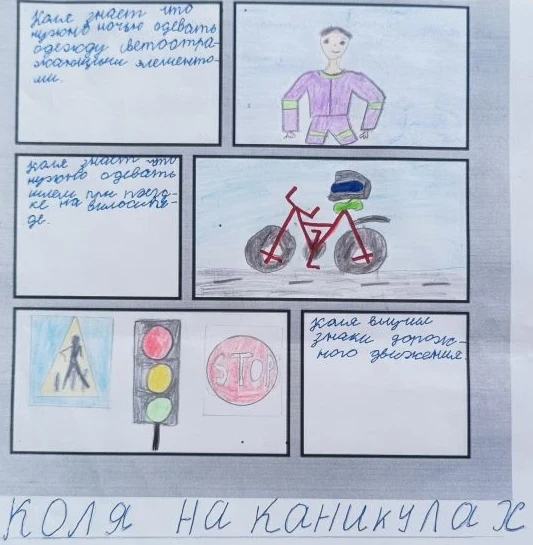 Коля знает что
нужно ночью одевать
одежду светоотра-
жающими элементо-
ми.
Коля знает что
нужно одевать
шлем при поезд-
ке на вилосипе-
де.
STOP
Коля выучил
знаки дорож-
ного движения.
КОЛЯ НА КАНИКУЛАХ